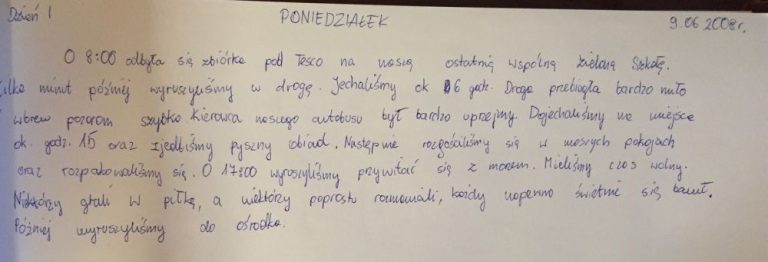 Dzień 1 PONIEDZIAŁEK 9.06 2008r.
O 8:00 odbyła się zbiórka pod Tesco na naszą ostatnią wspólną Zieloną Szkołę.
Kilka minut później wyruszyliśmy w drogę. Jechaliśmy ok 6 godz. Droga przebiegła bardzo miło
wbrew pozorom szybko. Kierowca naszego autobusu był bardzo uprzejmy. Dojechaliśmy na miejsce
ok. godz. 15 oraz zjedliśmy pyszny obiad. Następnie rozgościliśmy się w naszych pokojach
oraz rozpakowaliśmy się. O 17:00 wyruszyliśmy przywitać się z morzem. Mieliśmy czas wolny.
Niektórzy grali w piłkę, a niektórzy poprostu rozmawiali, każdy napewno świetnie się bawił.
Później wyruszyliśmy do ośrodka.